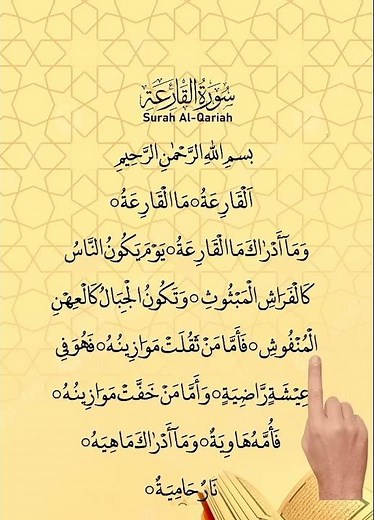 سُورَةُ الْقَارِعَة
Surah Al-Qariah
بِسْمِ اللهِ الرَّحْمٰنِ الرَّحِيْمِ
اَلْقَارِعَةُ ۝ مَا الْقَارِعَةُ ۝
وَمَآ أَدْرَاكَ مَا الْقَارِعَةُ ۝ يَوْمَ يَكُونُ النَّاسُ
كَالْفَرَاشِ الْمَبْثُوثِ ۝ وَتَكُونُ الْجِبَالُ كَالْعِهْنِ
الْمَنْفُوشِ ۝ فَأَمَّا مَنْ ثَقُلَتْ مَوَازِينُهُ ۝ فَهُوَ فِي
عِيْشَةٍ رَّاضِيَةٍ ۝ وَأَمَّا مَنْ خَفَّتْ مَوَازِينُهُ ۝
فَأُمُّهُ هَاوِيَةٌ ۝ وَمَآ أَدْرَاكَ مَاهِيَهْ ۝
نَارٌ حَامِيَةٌ ۝